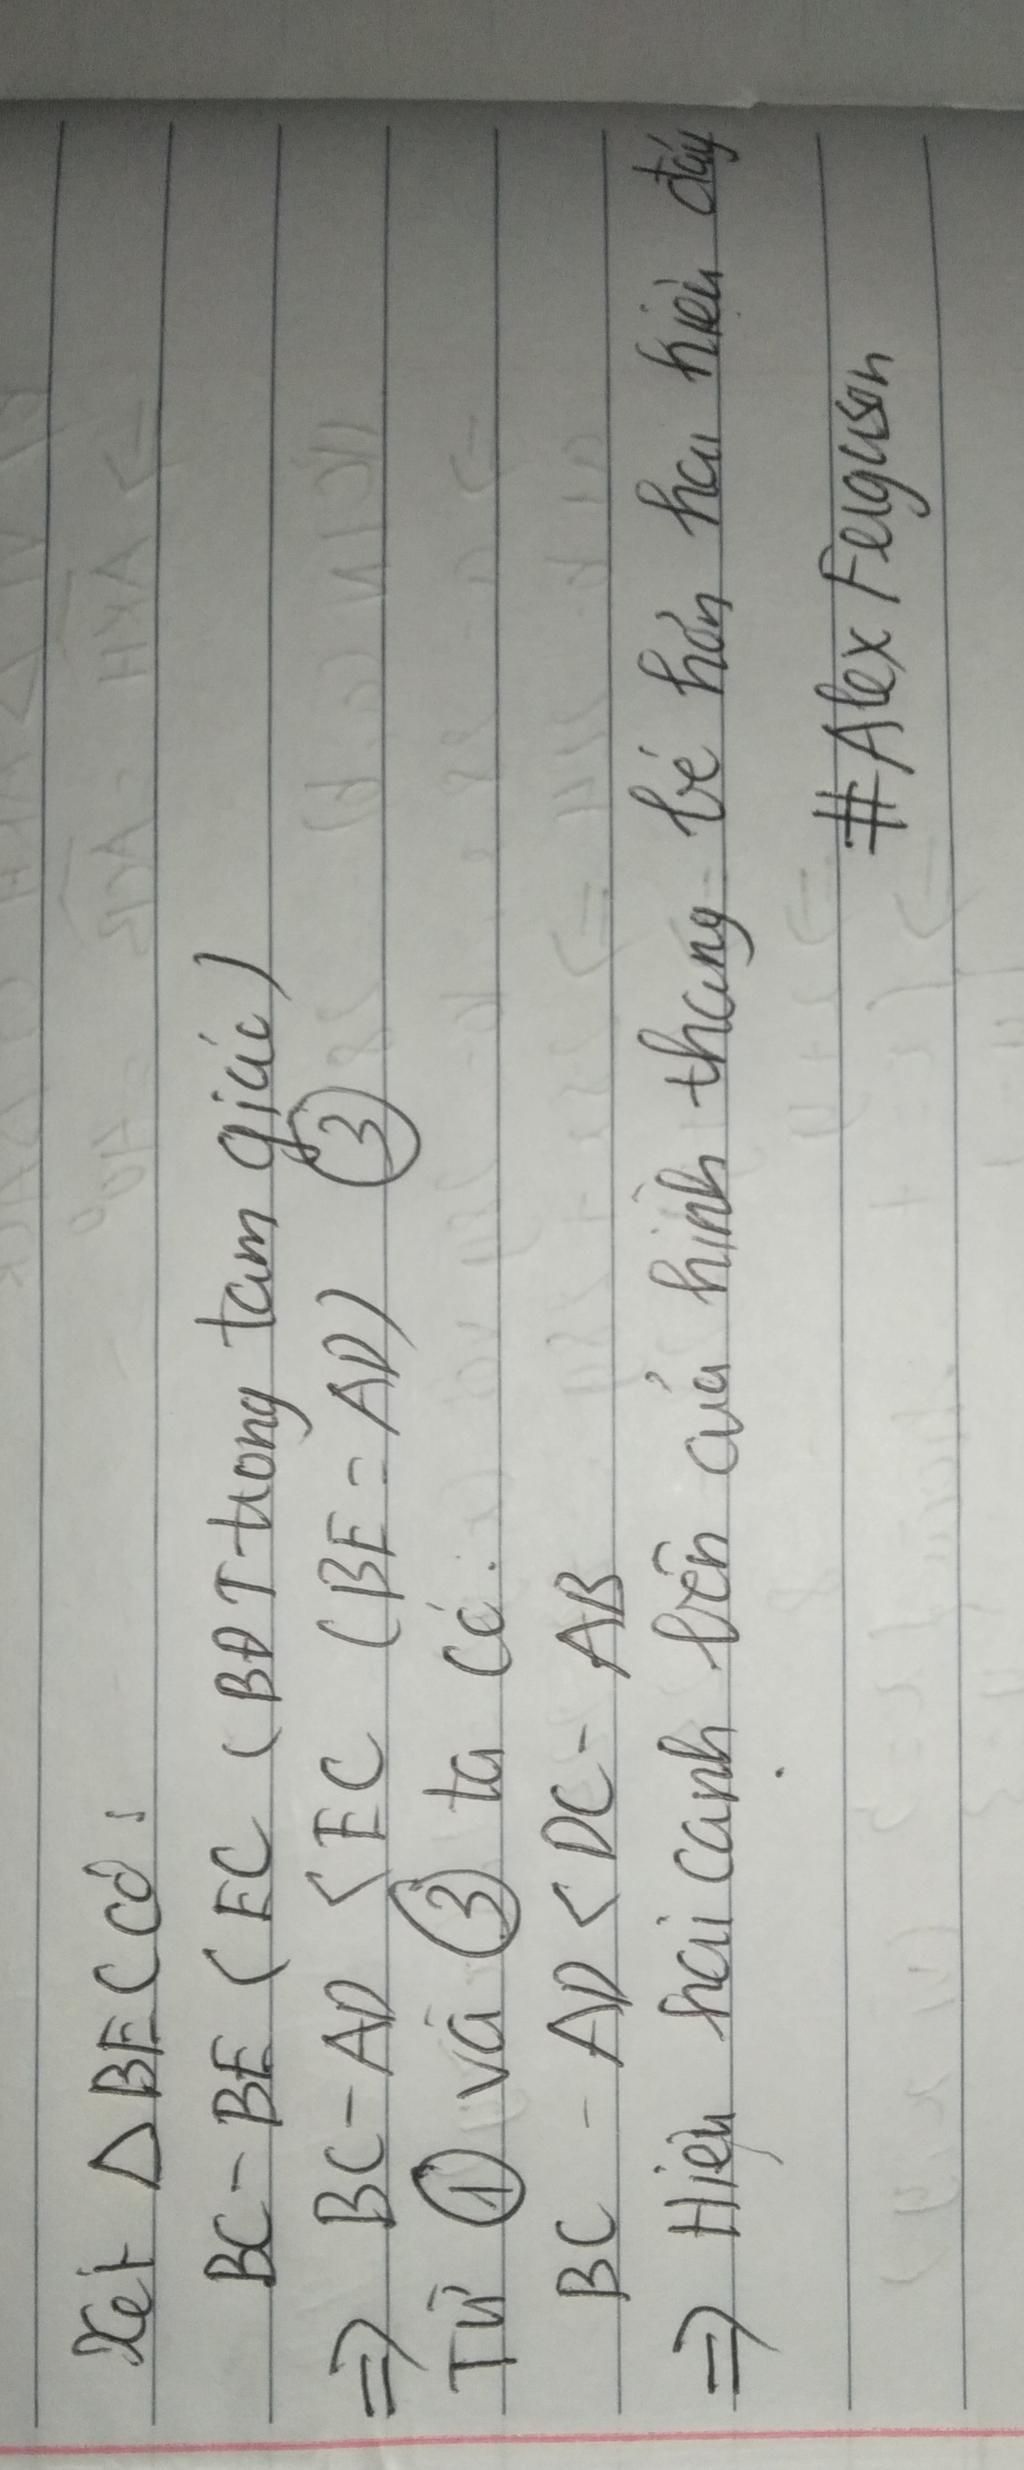 Xét ΔBEC có:
BC - BE < EC (BĐT trong tam giác)
⇒ BC - AD < EC (BE = AD) ③
Từ ① và ③ ta có:
BC - AD < DC - AB
⇒ Hiệu hai cạnh bên của hình thang bé hơn hai hiệu đáy
#Alex Ferguson